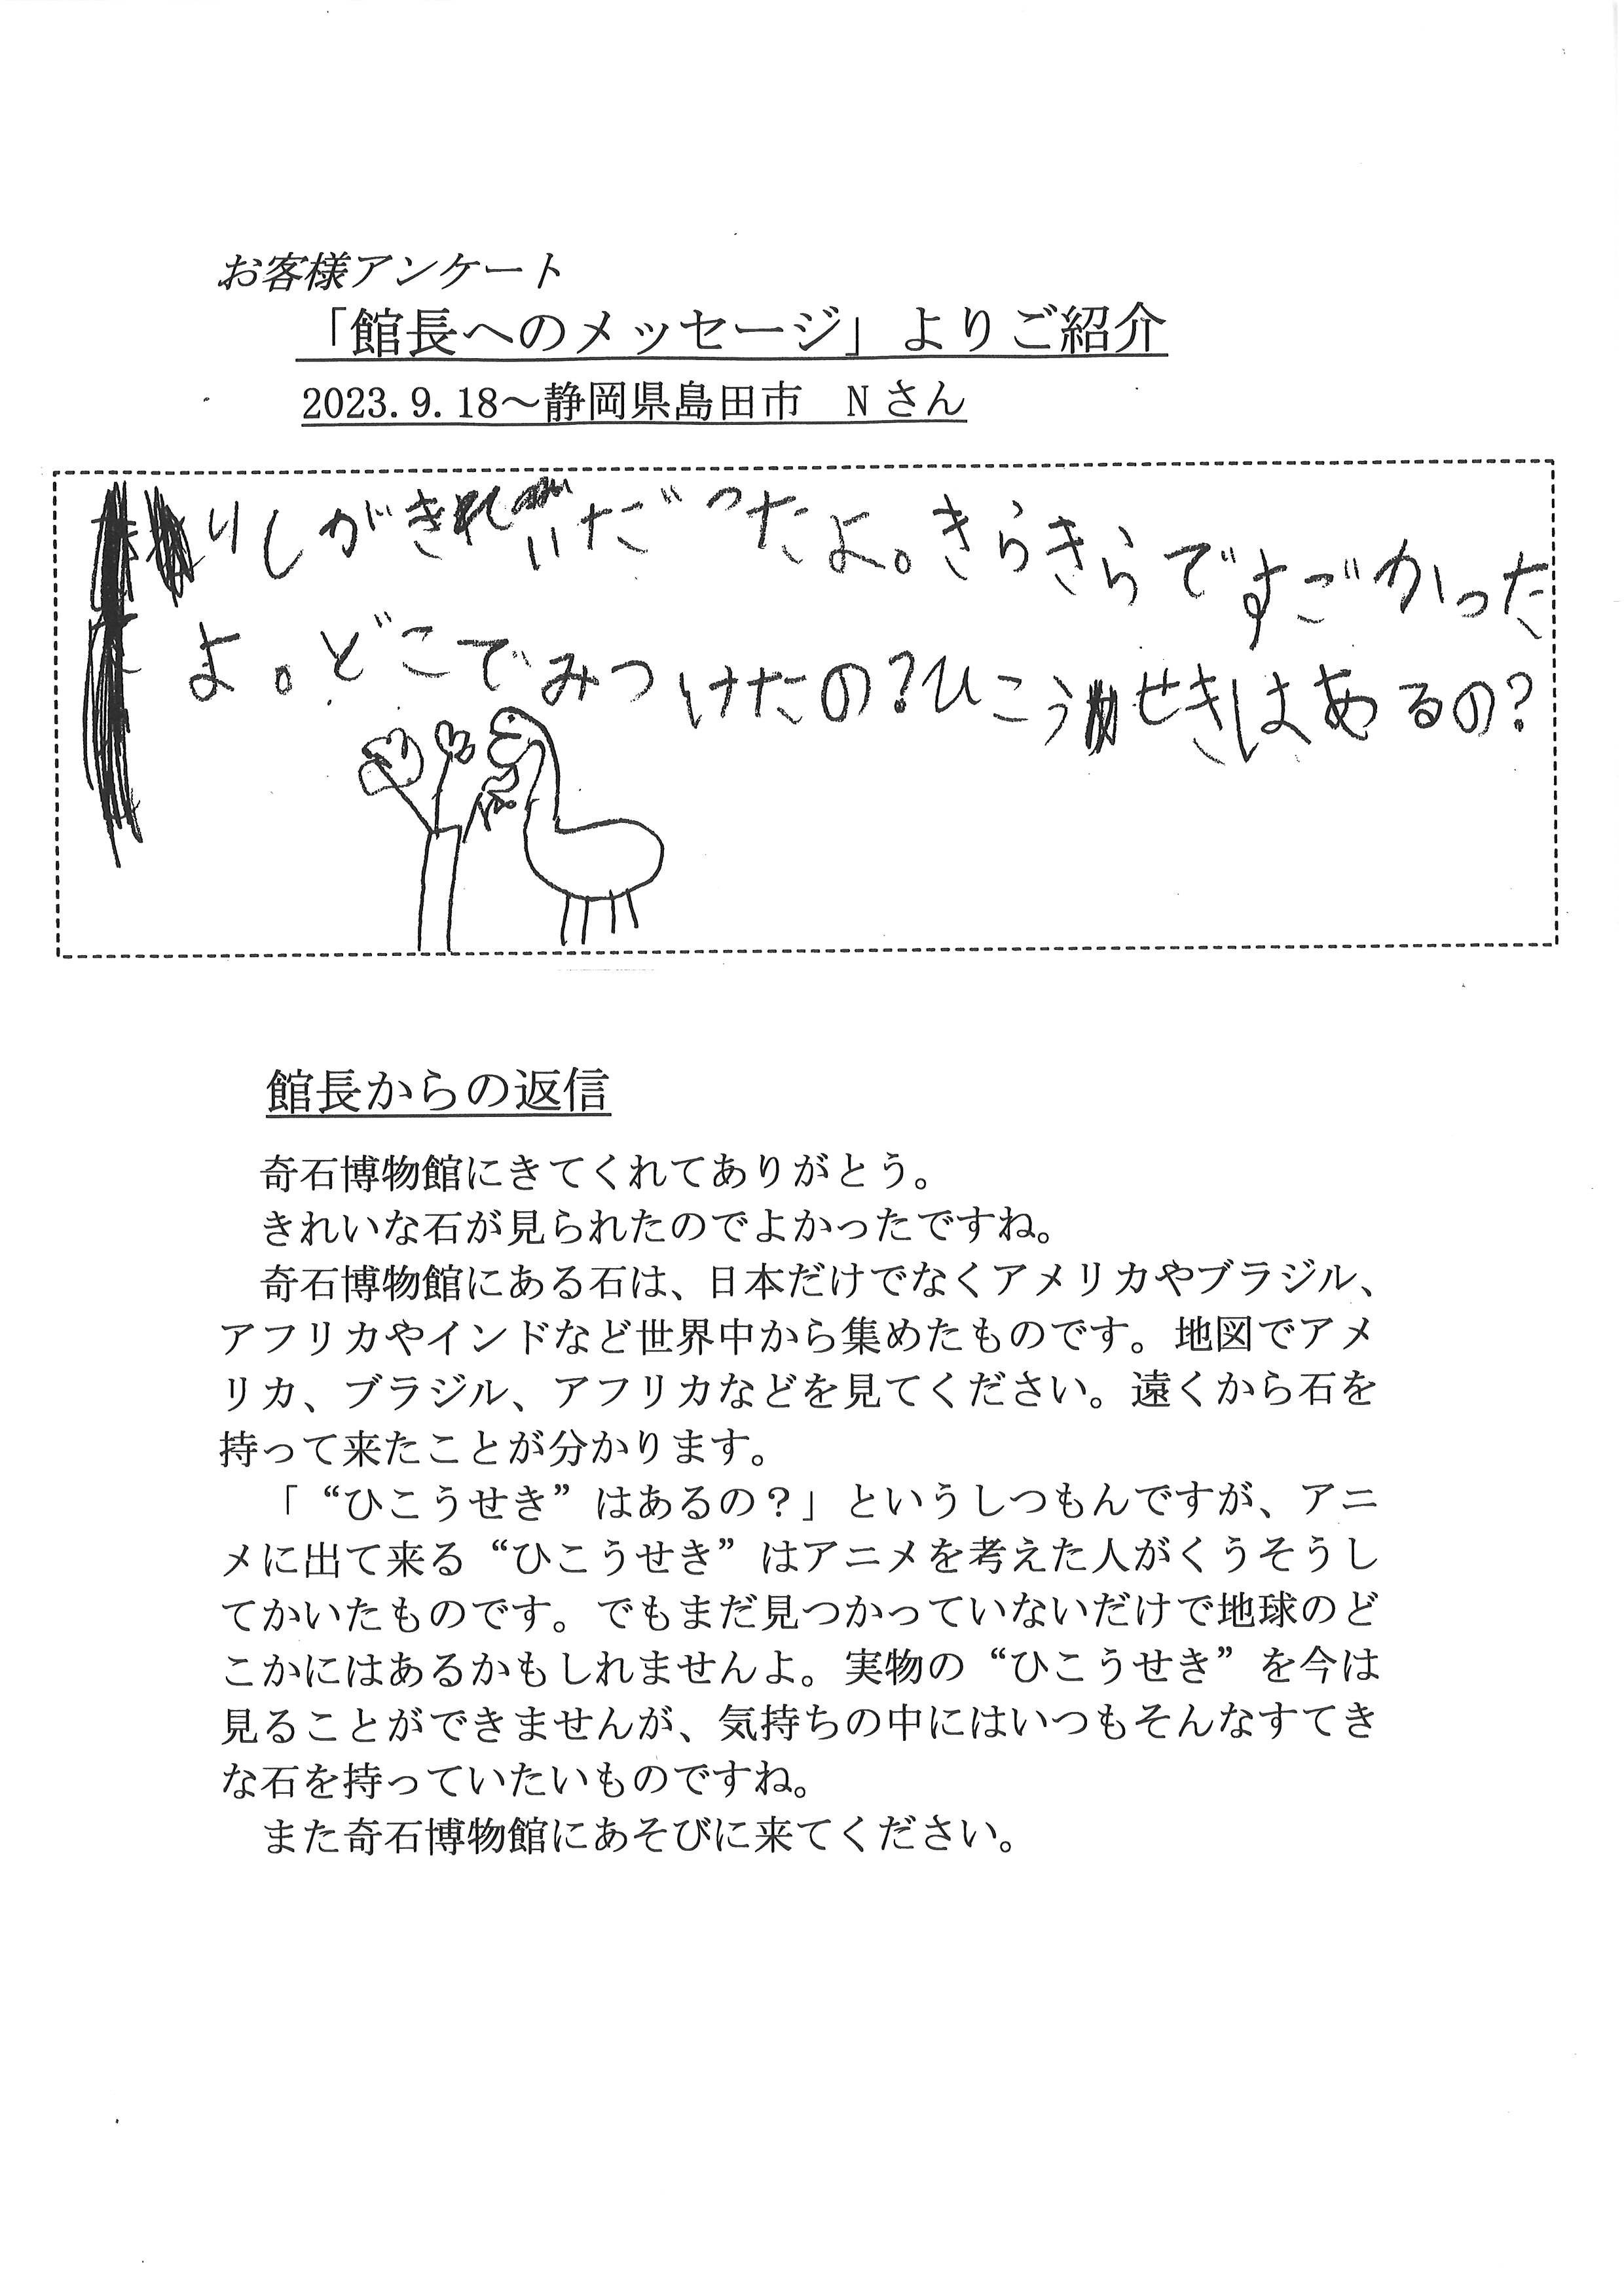 お客様アンケート
「館長へのメッセージ」よりご紹介
2023.9.18～静岡県島田市　Nさん
いしがきれいだったよ。きらきらですごかった
よ。どこでみつけたの?ひこうせきはあるの?
館長からの返信
奇石博物館にきてくれてありがとう。
きれいな石が見られたのでよかったですね。
奇石博物館にある石は、日本だけでなくアメリカやブラジル、
アフリカやインドなど世界中から集めたものです。地図でアメ
リカ、ブラジル、アフリカなどを見てください。遠くから石を
持って来たことが分かります。
「“ひこうせき”はあるの？」というしつもんですが、アニ
メに出て来る“ひこうせき”はアニメを考えた人がくうそうし
てかいたものです。でもまだ見つかっていないだけで地球のど
こかにはあるかもしれませんよ。実物の“ひこうせき”を今は
見ることができませんが、気持ちの中にはいつもそんなすてき
な石を持っていたいものですね。
また奇石博物館にあそびに来てください。